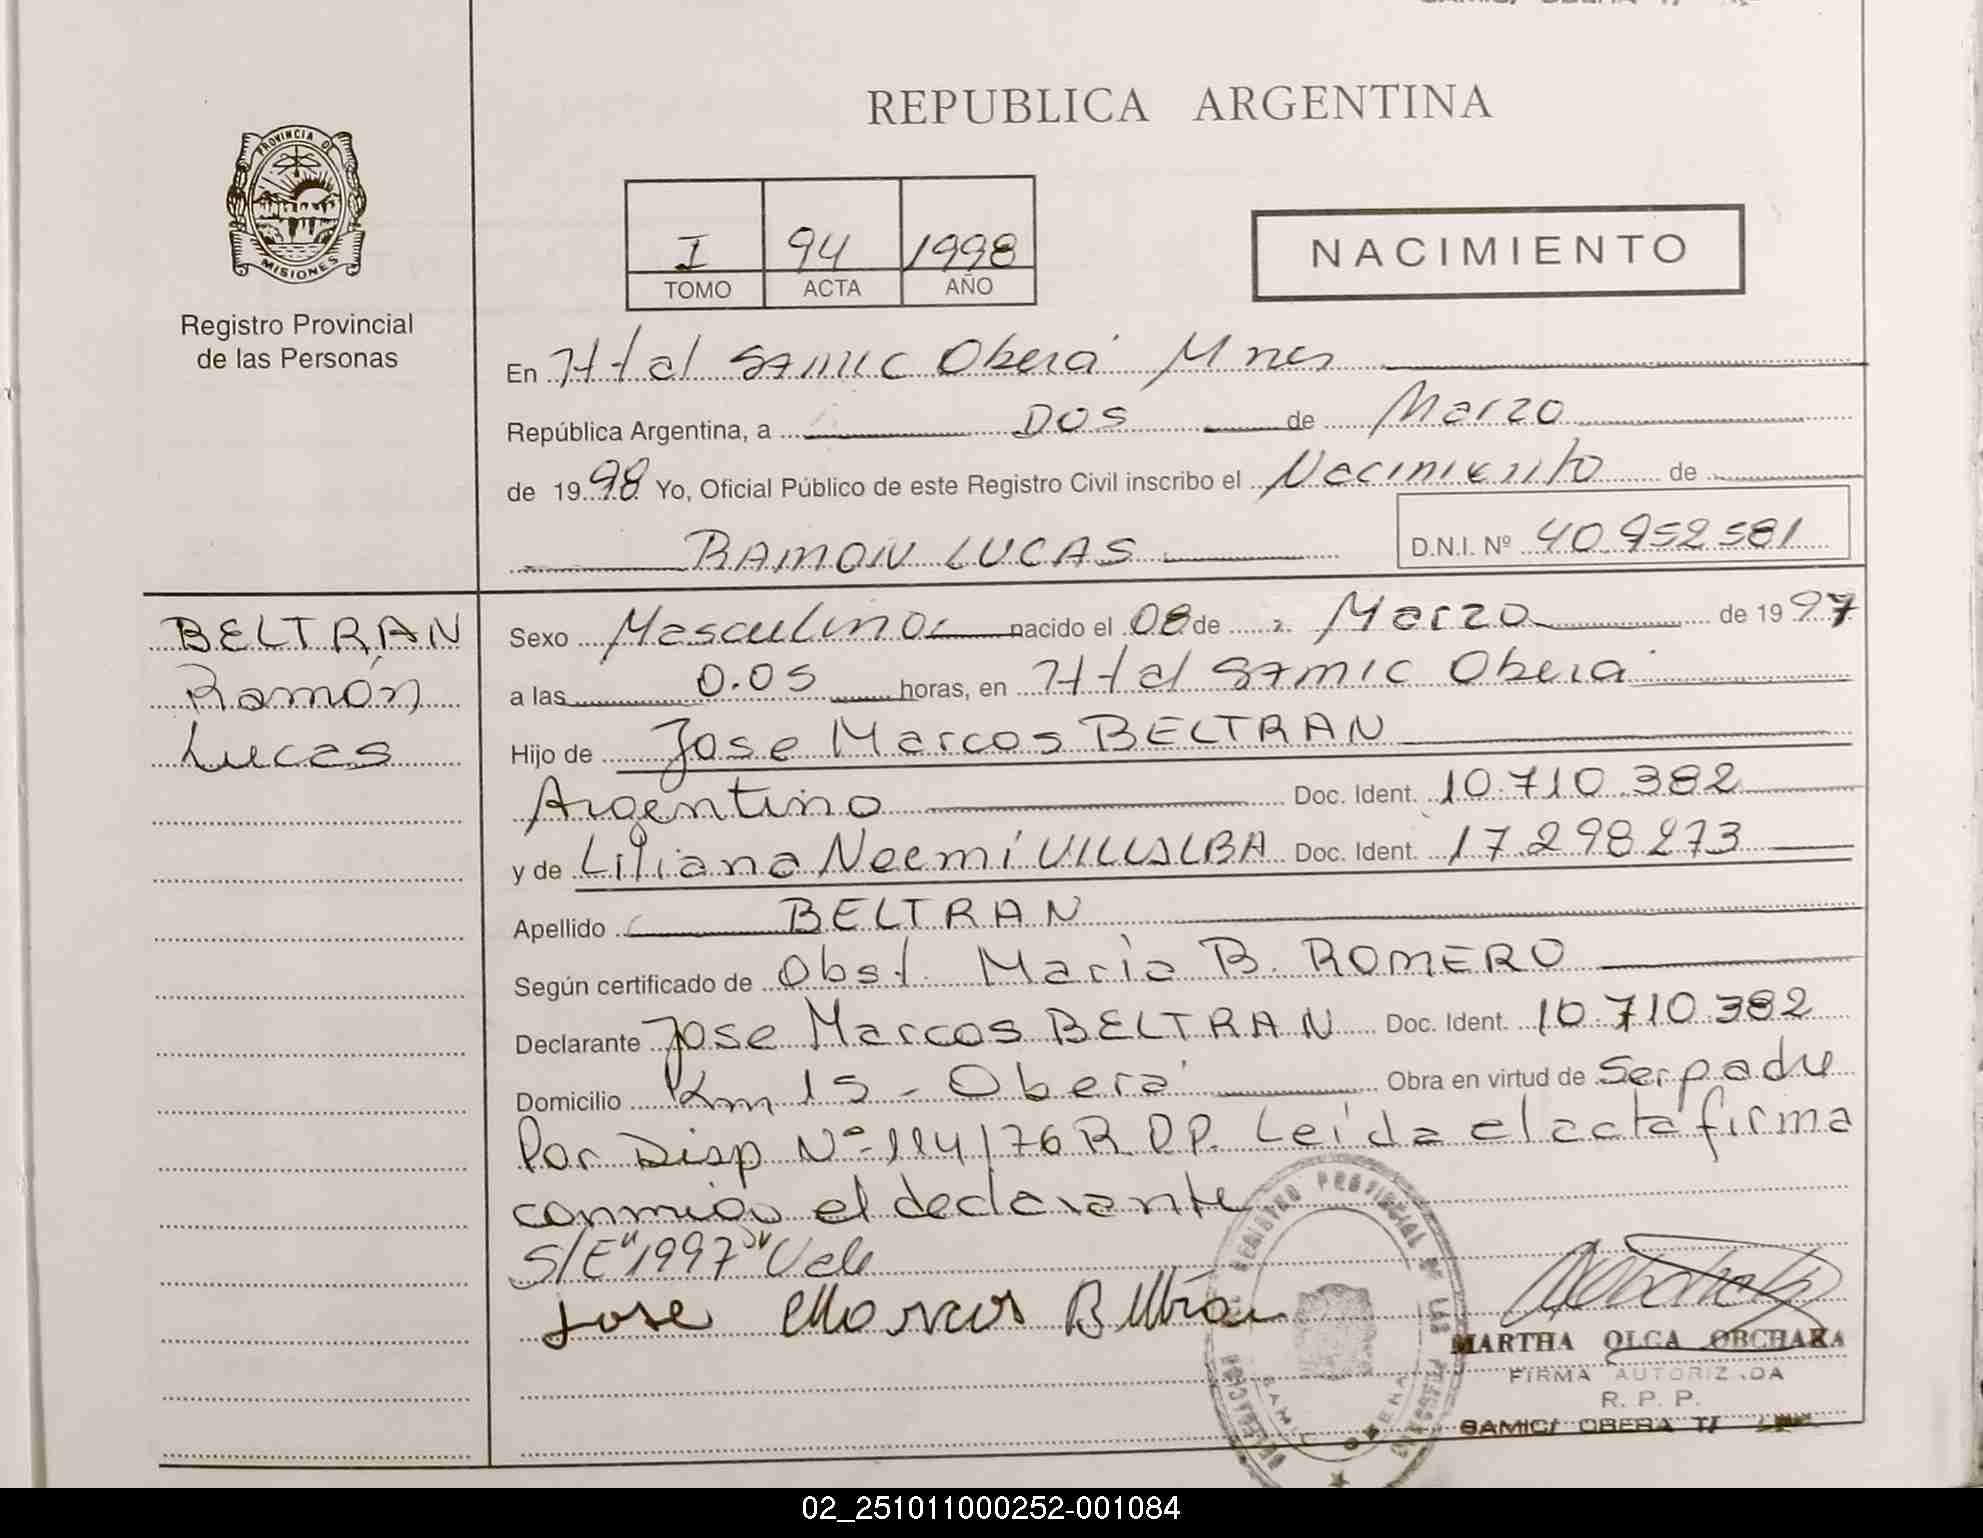 REPUBLICA ARGENTINA
PROVINCIA DE
MISIONES
Registro Provincial
de las Personas
I 94 1998
TOMO ACTA AÑO
NACIMIENTO
En Htal SAMIC Oberá Mnes
República Argentina, a DOS de Marzo
de 1998 Yo, Oficial Público de este Registro Civil inscribo el Nacimiento de
RAMON LUCAS D.N.I. Nº 40.952.581
BELTRAN
Ramón
Lucas
Sexo Masculino nacido el 08 de Marzo de 1997
a las 0.05 horas, en Htal SAMIC Oberá
Hijo de Jose Marcos BELTRAN
Argentino Doc. Ident. 10.710.382
y de Liliana Noemí VILLALBA Doc. Ident. 17.298.273
Apellido BELTRAN
Según certificado de Obst. María B. ROMERO
Declarante Jose Marcos BELTRAN Doc. Ident. 10.710.382
Domicilio Km 15 - Oberá Obra en virtud de Ser padre
Por Disp Nº 114/76 R.P.P. Leída el acta firma
conmigo el declarante
S/E "1997" Vale
Jose Marcos Beltran
REGISTRO PROVINCIAL DE LAS PERSONAS
MARTHA OLGA OBCHARA
FIRMA AUTORIZADA
R. P. P.
SAMIC/ OBERA T/
02_251011000252-001084